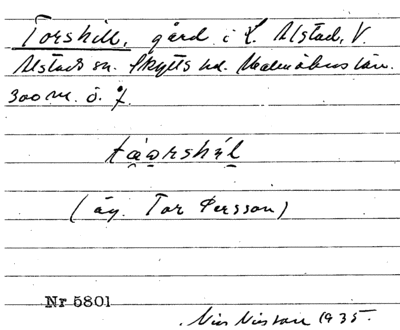 Torskill, gård i L. Alstad, V.
Alstads sn. Skytts hd. Malmöhus län.
300 m. ö. f.
tåorshil
(äg. Tor Persson)
Nr 5801
Nils Nilsson 1935.